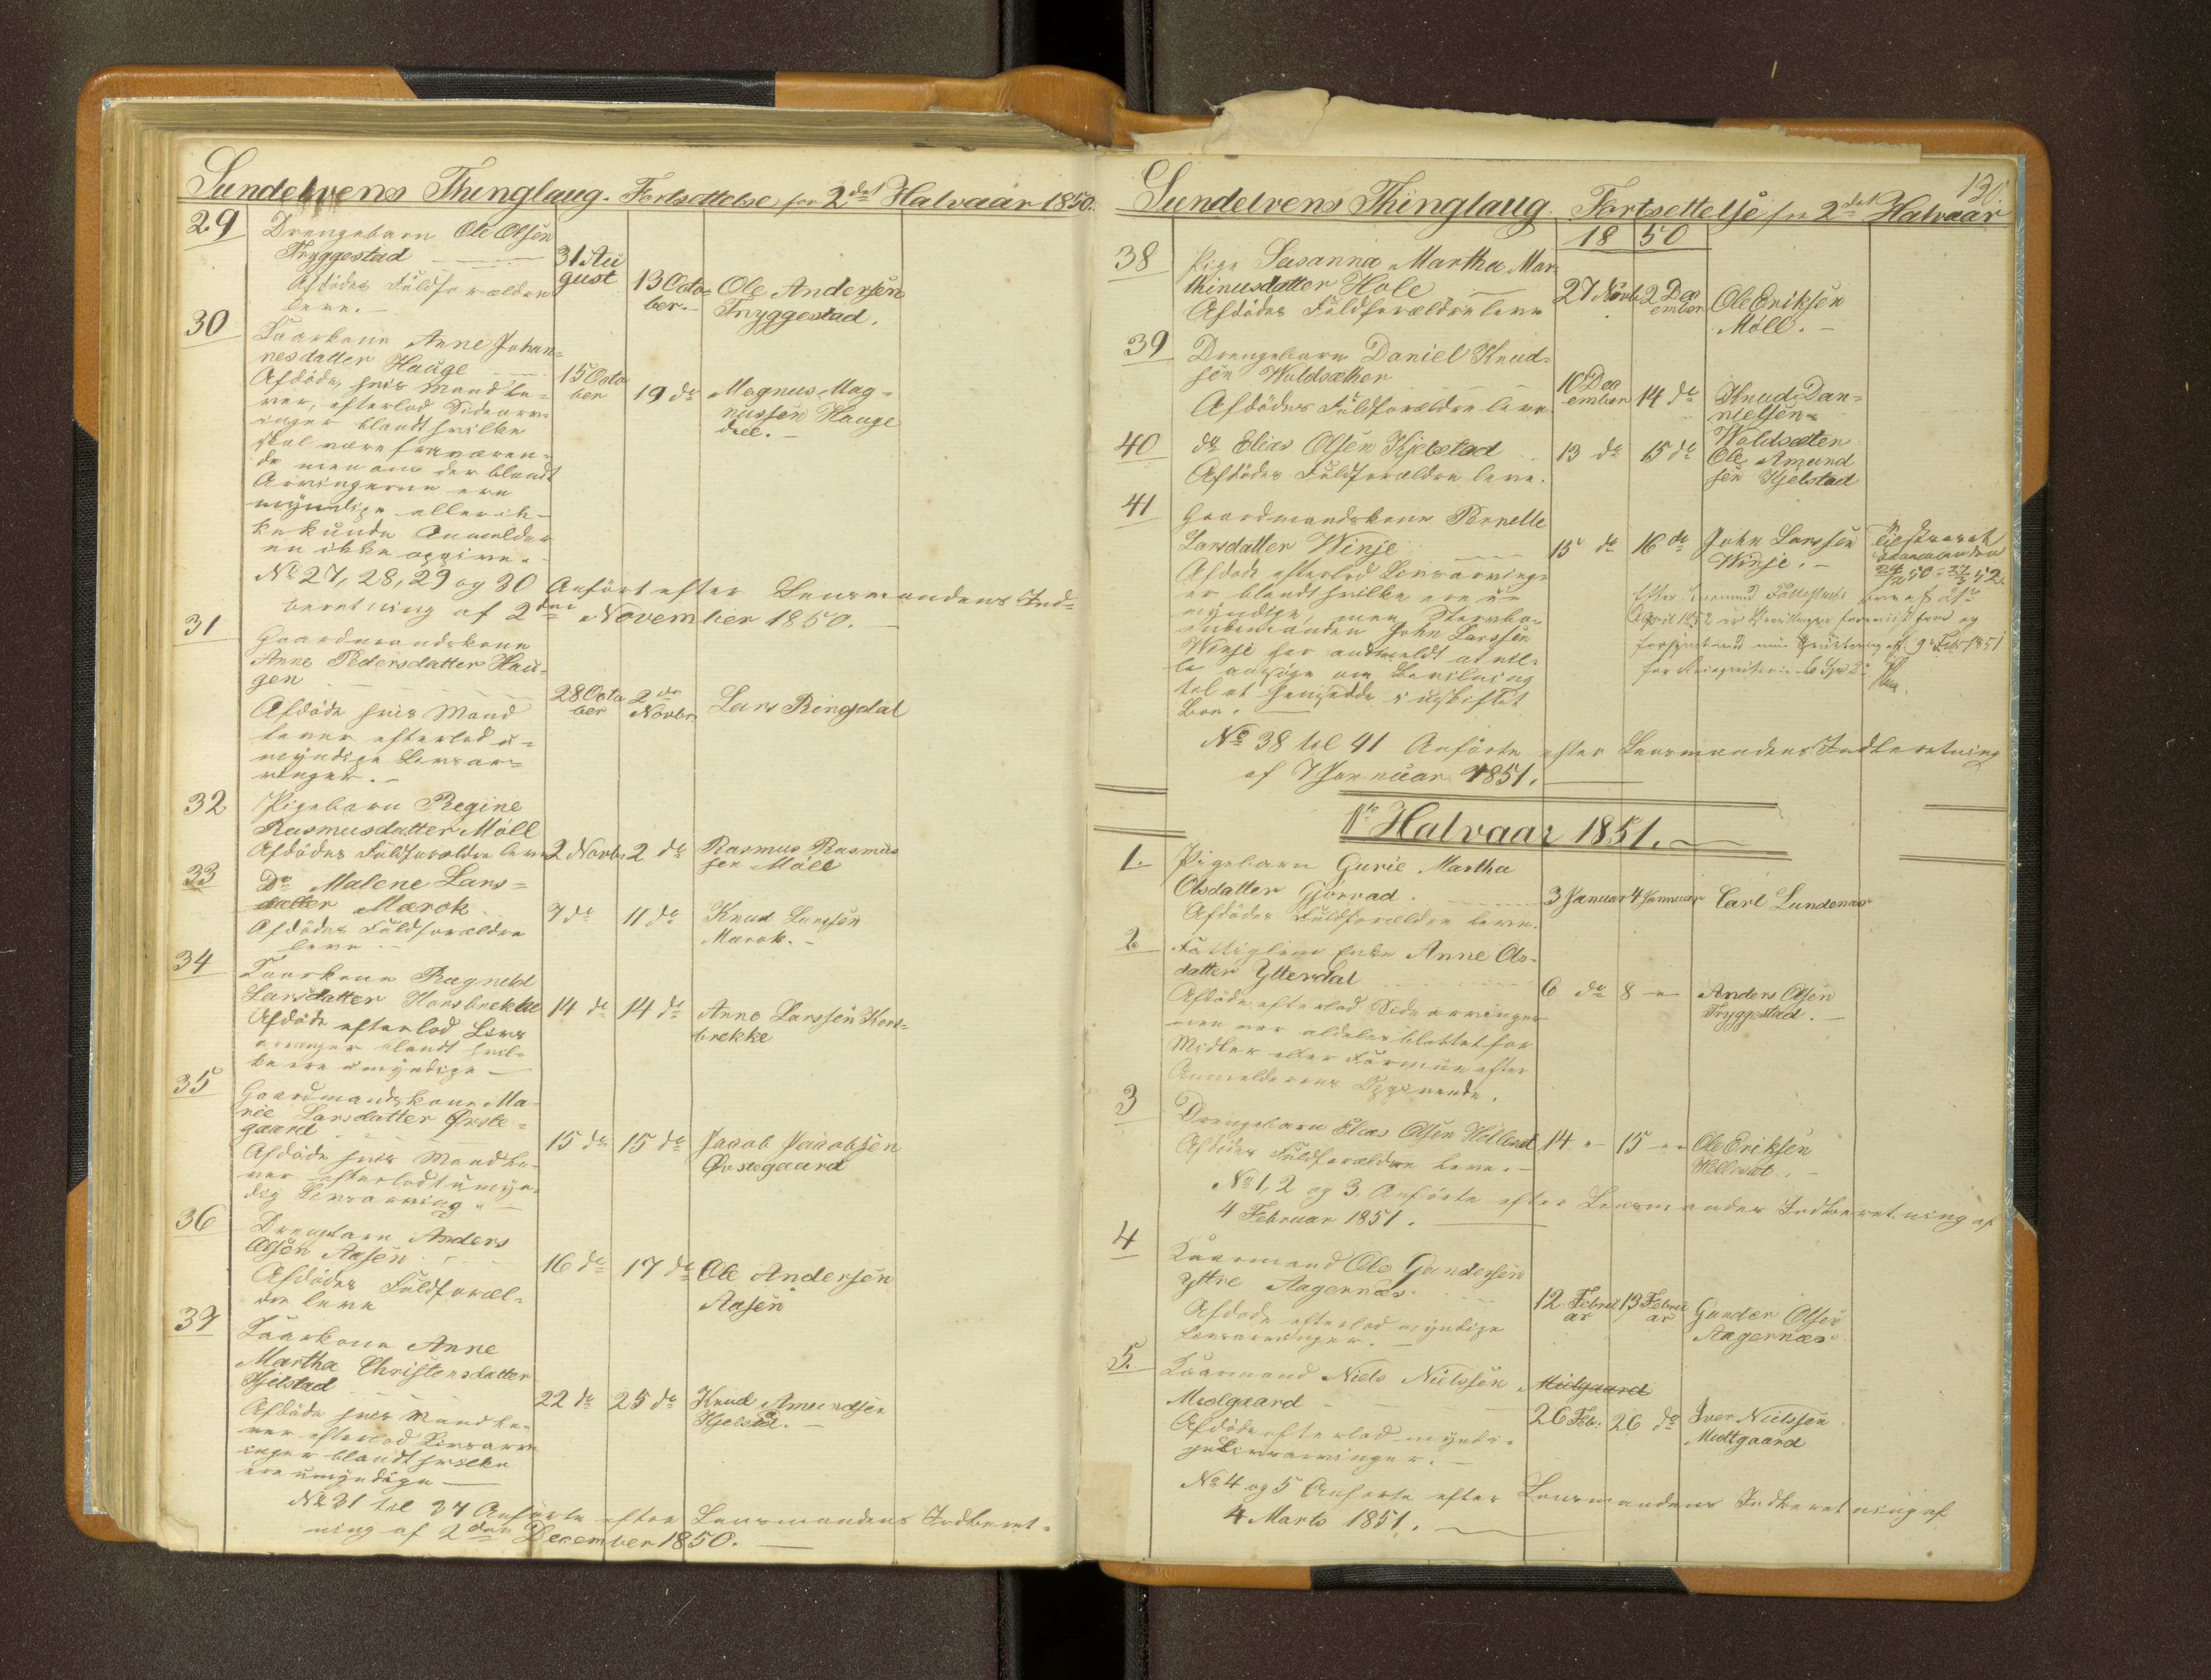 Sundelvens Thinglaug. Fortsættelse for 2det Halvaar 1850.
29
Drengebarn Ole Olsen
Tryggestad
Afdødes Fuldforældre
leve.
31 Au
gust
13 Octo=
ber.
Ole Andersen
Tryggestad.
30
Kaarkone Anne Johan=
nesdatter Hauge
Afdøde, hvis Mand le=
ver, efterlod Sidearv=
inger blandt hvilke
skal være fraværen=
de men om der blandt
Arvingerne ere
myndige eller ik=
ke kunde Anmelder
en ikke opgive.
15 Octo
ber
19 do
Magnus Mag=
nussen Hauge
No 27, 28, 29 og 30 Anført efter Lensmandens Ind=
beretning af 2den November 1850.
31
Gaardmandskone
Anne Pedersdatter Hau=
gen
Afdøde hvis Mand
lever efterlod u=
myndige Livsar=
vinger.
28 Octo
ber
2 do
Novbr
Lars Ringdal
32
Pigebarn Regine
Rasmusdatter Möll
Afdødes Fuldforældre leve
2 Novbr
2 do
Rasmus Rasmus
sen Möll
33
Do Malene Lars=
datter Marok
Afdødes Fuldforældre
leve
7 do
11 do
Knud Larssen
Marok.
34
Kaarkone Ragnehl
Larsdatter Korsbrekke
Afdøde efterlod Livs
arvinger blandt hvil=
ke ere umyndige
14 do
14 do
Arne Larssen Kors=
brekke
35
Gaardmandskone Ma=
rie Larsdatter Øvste=
gaard
Afdøde hvis Mand le=
ver efterlod umyn=
dig Livsarving
15 do
15 do
Jacob Jacobsen
Øvstegaard
36
Drengebarn Anders
Olsen Aasen
Afdødes Fuldforæl=
dre leve
16 do
17 do
Ole Andersen
Aasen
37
Kaarkone Anne
Martha Christensdatter
Kjelstad
Afdøde hvis Mand le=
ver efterlod Livsarv
inger blandt hvilke
ere umyndige
22 do
25 do
Knud Amundsen
Kjelstad.
No 31 til 37 Anførte efter Lensmandens Indberet=
ning af 2den December 1850.
130.
Sundelvens Thinglaug Fortsettelse for 2det Halvaar
1850
38
Pige Susanna Martha Mar
thinusdatter Hole
Afdødes Fuldforældre leve
27 Novbr
2 Dec
ember
Ole Eriksen
Möll.
39
Drengebarn Daniel Knud=
sen Woldsæther
Afdødes Fuldforældre leve
10 Dec
ember
14 do
Knud Dan=
nielsen
Woldsæten
40
do Elias Olsen Kjelstad
Afdødes Fuldforældre leve.
13 do
15 do
Ole Amund
sen Kjelstad
41
Gaardmandskone Pernelle
Larsdatter Winje
Afdøde efterlod Livsarvinge
er blandt hvilke ere u=
myndige, men Stervbo=
enkemanden John Larssen
Winje har anmeldt at vil=
le ansøge om Bevilning
til at hensidde i uskiftet
Boe.
15 do
16 do
John Larssen
Winje.
April 1852
9 Feb 1851
No 38 til 41 Anførte efter Lensmandens Indberetning
af 7 Januar 1851.
1ste Halvaar 1851.
1.
Pigebarn Gurie Martha
Olsdatter Gjørvad
Afdødes Fuldforældre leve.
3 Januar
4 Januar
Carl Lundenæs
2
Fattiglem Enke Anne Ols=
datter Ytterdal
Afdøde efterlod Sidearvinger
men var aldeles blottet for
Midler eller Formue efter
Anmelderens Opgivende.
6 do
8 "
Anders Olsen
Tryggestad.
3
Drengebarn Elias Olsen Hellevad
Afdødes Fuldforældre leve.
14 "
15 "
Ole Eriksen
No 1, 2 og 3 Anførte efter Lensmandens Indberetning af
4 Februar 1851.
4
Kaarmand Ole Gundersen
Yttre Aagernæs
Afdøde efterlod myndige
Livsarvinger.
12 Febru
ar
13 Febru
ar
Gunder Olsen
Aagernæs
5.
Kaarmand Niels Nielssen Midtgaard
Midtgaard
Afdøde efterlod myndi=
ge Livsarvinger.
26 Feb.
26 do
Iver Nielssen
Midtgaard
No 4 og 5 Anførte efter Lensmandens Indberetning af
4 Marts 1851.